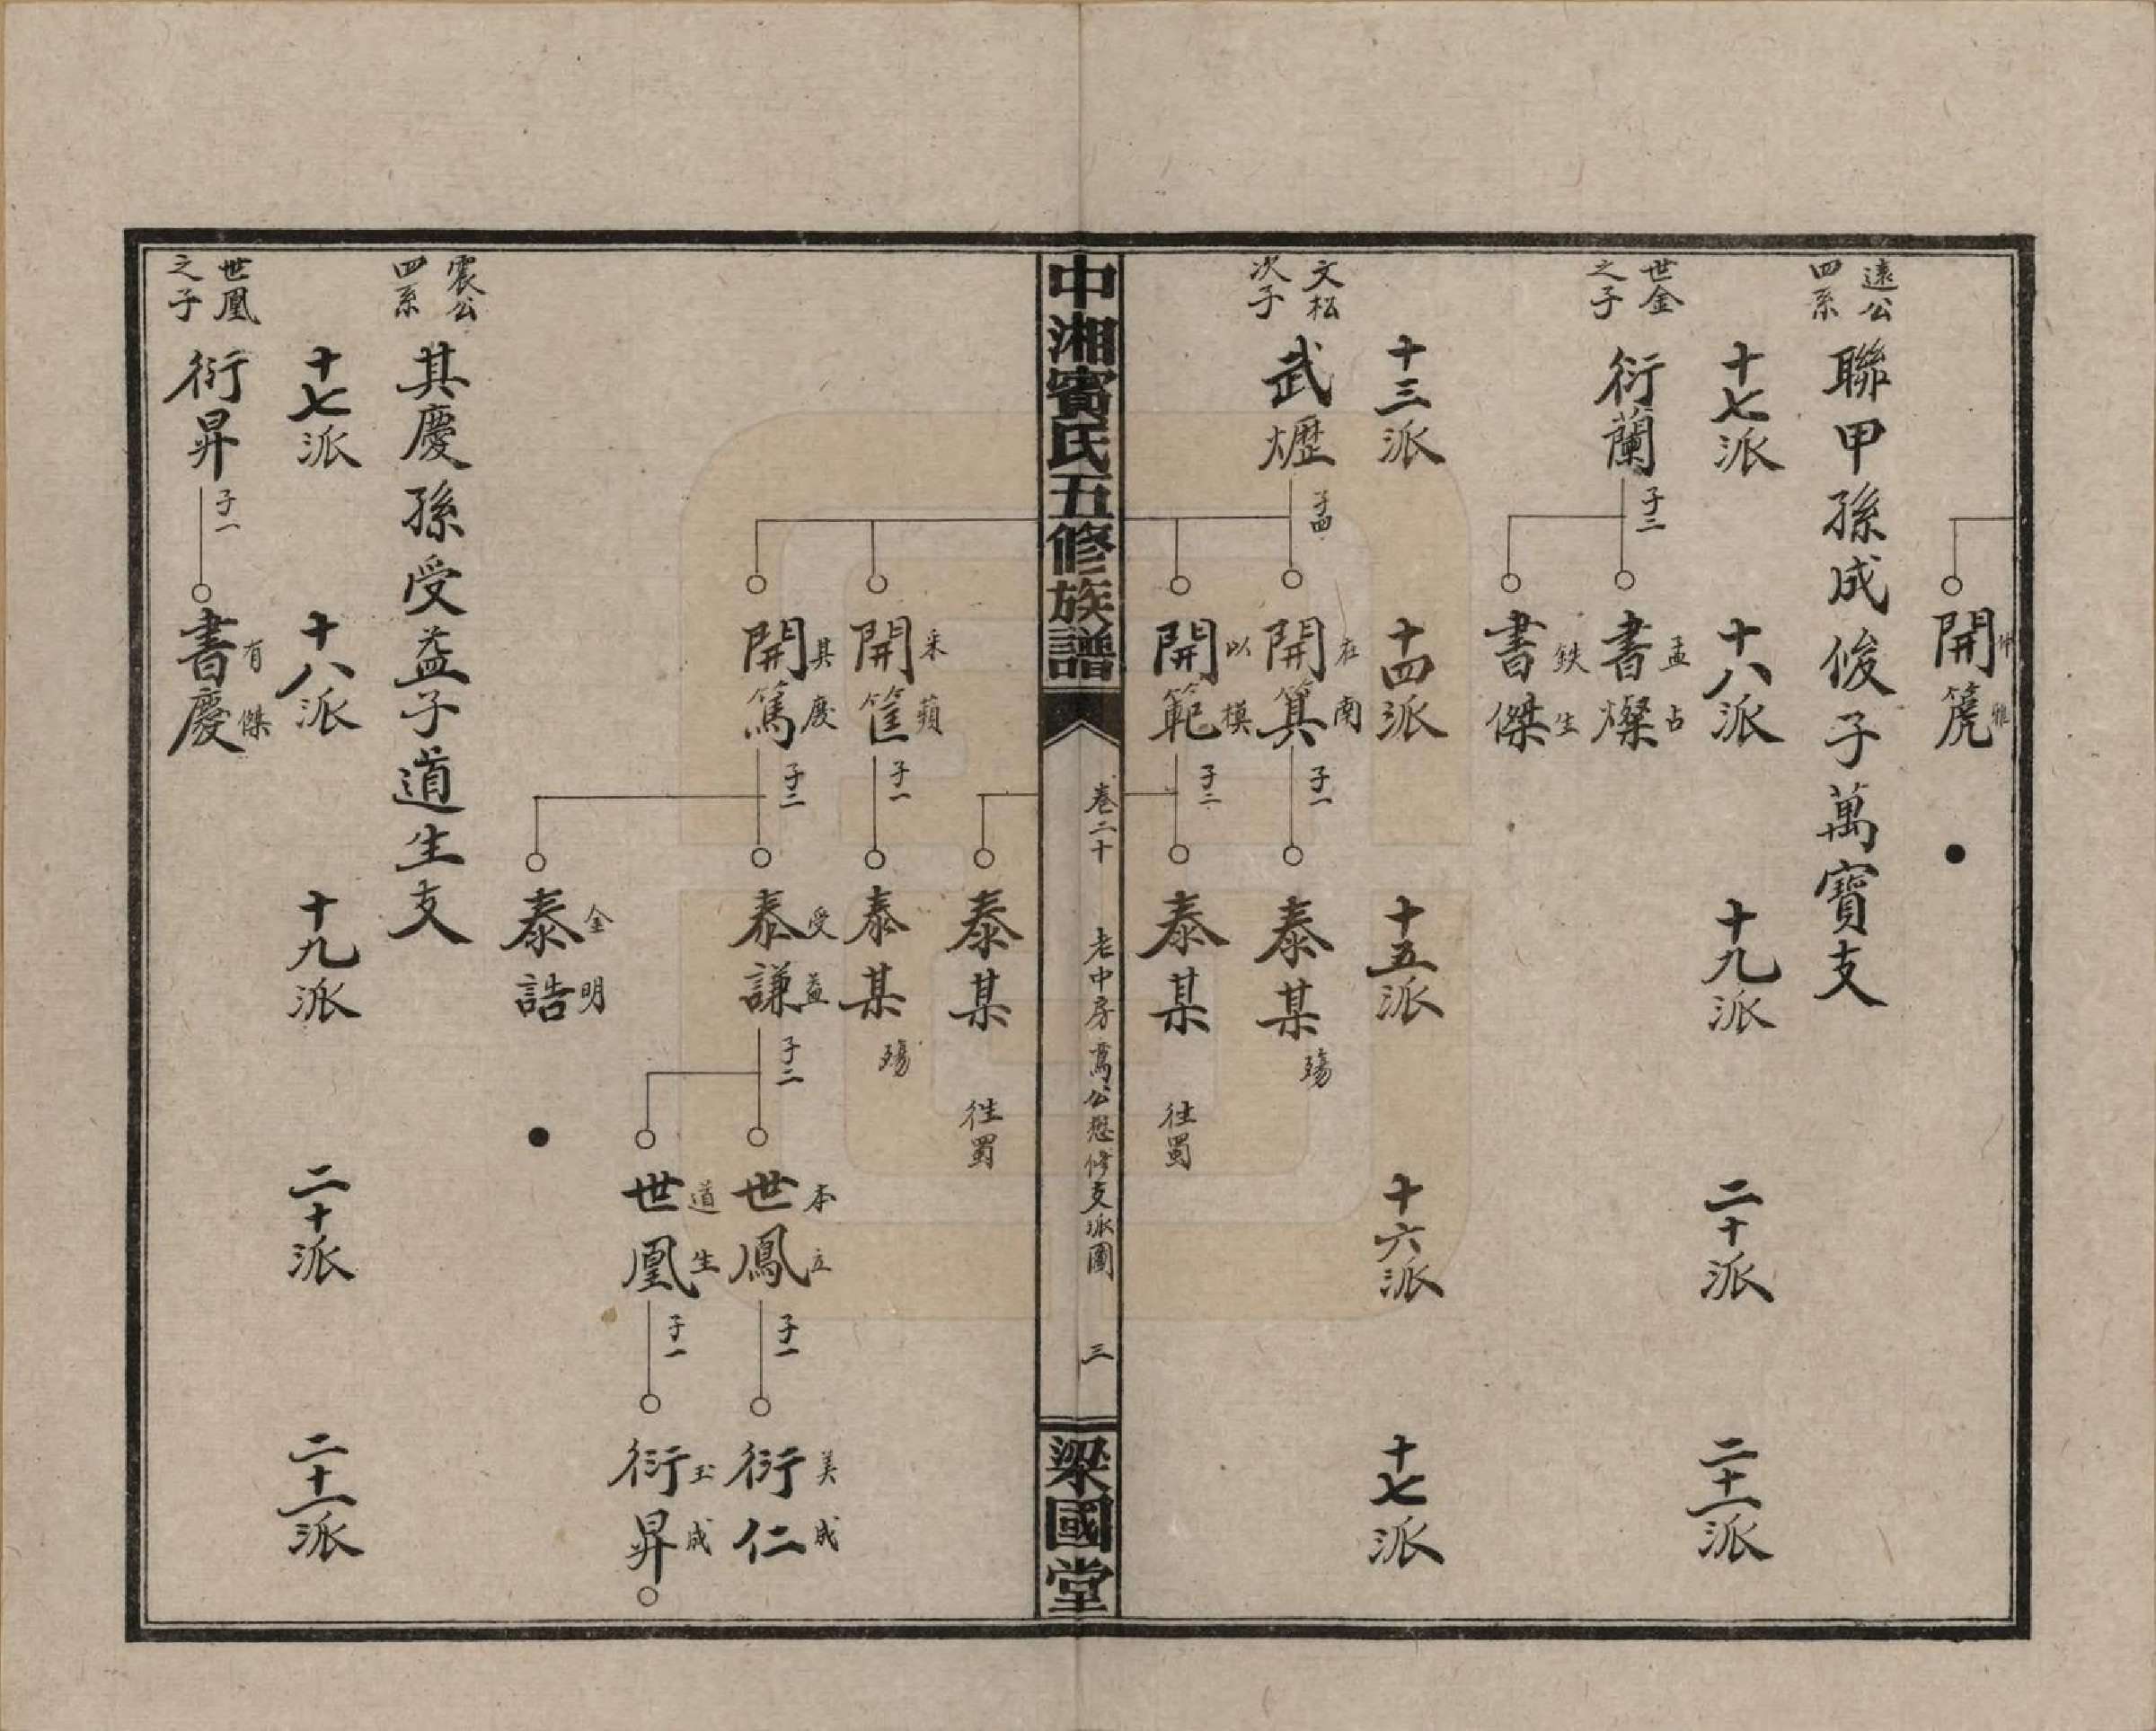 開箎
仲雅
遠公四系
聯甲孫成俊子萬寶支
十七派
十八派
十九派
二十派
二十一派
世金之子
衍蘭
子二
書燦
孟占
書傑
鉄生
十三派
十四派
十五派
十六派
十七派
文松次子
武爏
子四
開箕
在南
子一
泰某
殤
開範
以模
子二
泰某
往蜀
中湘賓氏五修族譜
卷二十
老中房萬公懋修支派圖
三
梁國堂
泰某
往蜀
開筐
采蘋
子一
泰某
殤
開篤
其慶
子二
泰謙
受益
子二
世鳳
本立
子一
衍仁
美成
世凰
道生
子一
衍昇
玉成
泰誥
金明
震公四系
其慶孫受益子道生支
十七派
十八派
十九派
二十派
二十一派
世凰之子
衍昇
子一
書慶
有傑